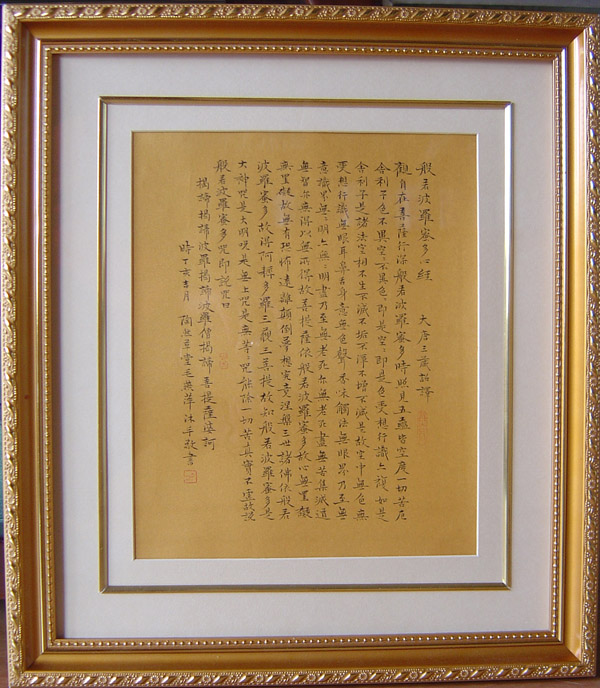 般若波羅蜜多心經 大唐三藏詔譯
觀自在菩薩行深般若波羅蜜多時照見五蘊皆空度一切苦厄
舍利子色不異空〻不異色〻即是空〻即是色受想行識亦復如是
舍利子是諸法空相不生不滅不垢不淨不增不減是故空中無色無
受想行識無眼耳鼻舌身意無色聲香味觸法無眼界乃至無
意識界無〻明亦無〻明盡乃至無老死亦無老死盡無苦集滅道
無智亦無得以無所得故菩提薩依般若波羅蜜多故心無罣礙
無罣礙故無有恐怖遠離顛倒夢想究竟涅槃三世諸佛依般若
波羅蜜多故得阿耨多羅三藐三菩提故知般若波羅蜜多是
大神咒是大明咒是無上咒是無等〻咒能除一切苦真實不虛故說
般若波羅蜜多咒即說咒曰
揭諦揭諦波羅揭諦波羅僧揭諦菩提薩婆訶
時丁亥吉月 陶然堂毛燕萍沐手敬書